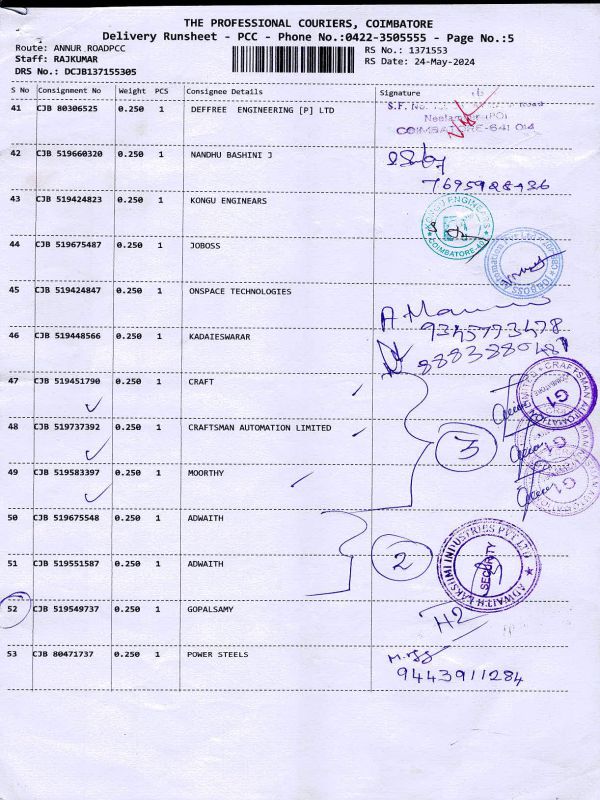 THE PROFESSIONAL COURIERS, COIMBATORE
Delivery Runsheet - PCC - Phone No.:0422-3505555 - Page No.:5
Route: ANNUR ROADPCC
RS No.: 1371553
Staff: RAJKUMAR
RS Date: 24-May-2024
DRS No.: DCJB137155305
S No Consignment No Weight PCS Consignee Details Signature
41 CJB 80306525 0.250 1 DEFFREE ENGINEERING [P] LTD
S.F. No.
(PO)
COIMBATORE-641 014
42 CJB 519660320 0.250 1 NANDHU BASHINI J
43 CJB 519424823 0.250 1 KONGU ENGINEARS
KONGU ENGINEARS
COIMBATORE
44 CJB 519675487 0.250 1 JOBOSS
45 CJB 519424847 0.250 1 ONSPACE TECHNOLOGIES
46 CJB 519448566 0.250 1 KADAIESWARAR
9345773478
47 CJB 519451790 0.250 1 CRAFT
CRAFTSMAN AUTOMATION
G1
48 CJB 519737392 0.250 1 CRAFTSMAN AUTOMATION LIMITED
3
G1
49 CJB 519583397 0.250 1 MOORTHY
G1
50 CJB 519675548 0.250 1 ADWAITH
2
51 CJB 519551587 0.250 1 ADWAITH
ADWAITH LAKSHMI INDUSTRIES PVT LTD
SECURITY
52 CJB 519549737 0.250 1 GOPALSAMY
H2
53 CJB 80471737 0.250 1 POWER STEELS
9443911284